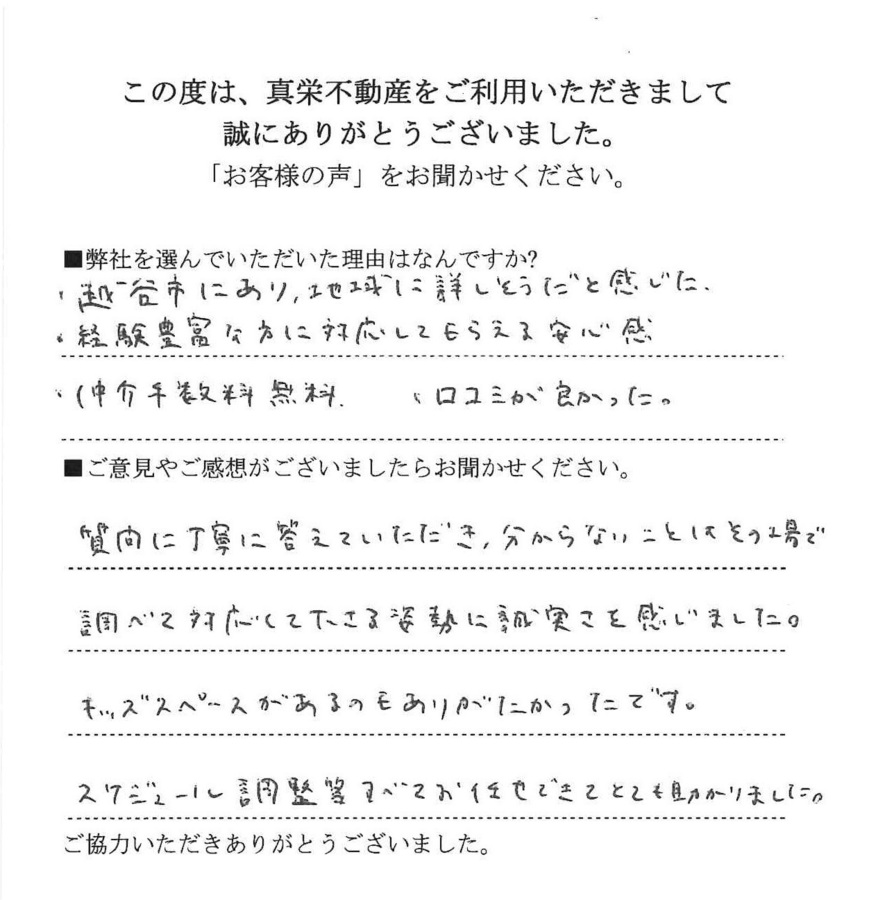 この度は、真栄不動産をご利用いただきまして
誠にありがとうございました。
「お客様の声」をお聞かせください。
■弊社を選んでいただいた理由はなんですか?
・越谷市にあり、地域に詳しそうだと感じた。
・経験豊富な方に対応してもらえる安心感
・仲介手数料無料. ・口コミが良かった。
■ご意見やご感想がございましたらお聞かせください。
質問に丁寧に答えていただき、分からないことはその場で
調べて対応して下さる姿勢に誠実さを感じました。
キッズスペースがあるのもありがたかったです。
スケジュール調整等すべてお任せできてとても助かりました。
ご協力いただきありがとうございました。